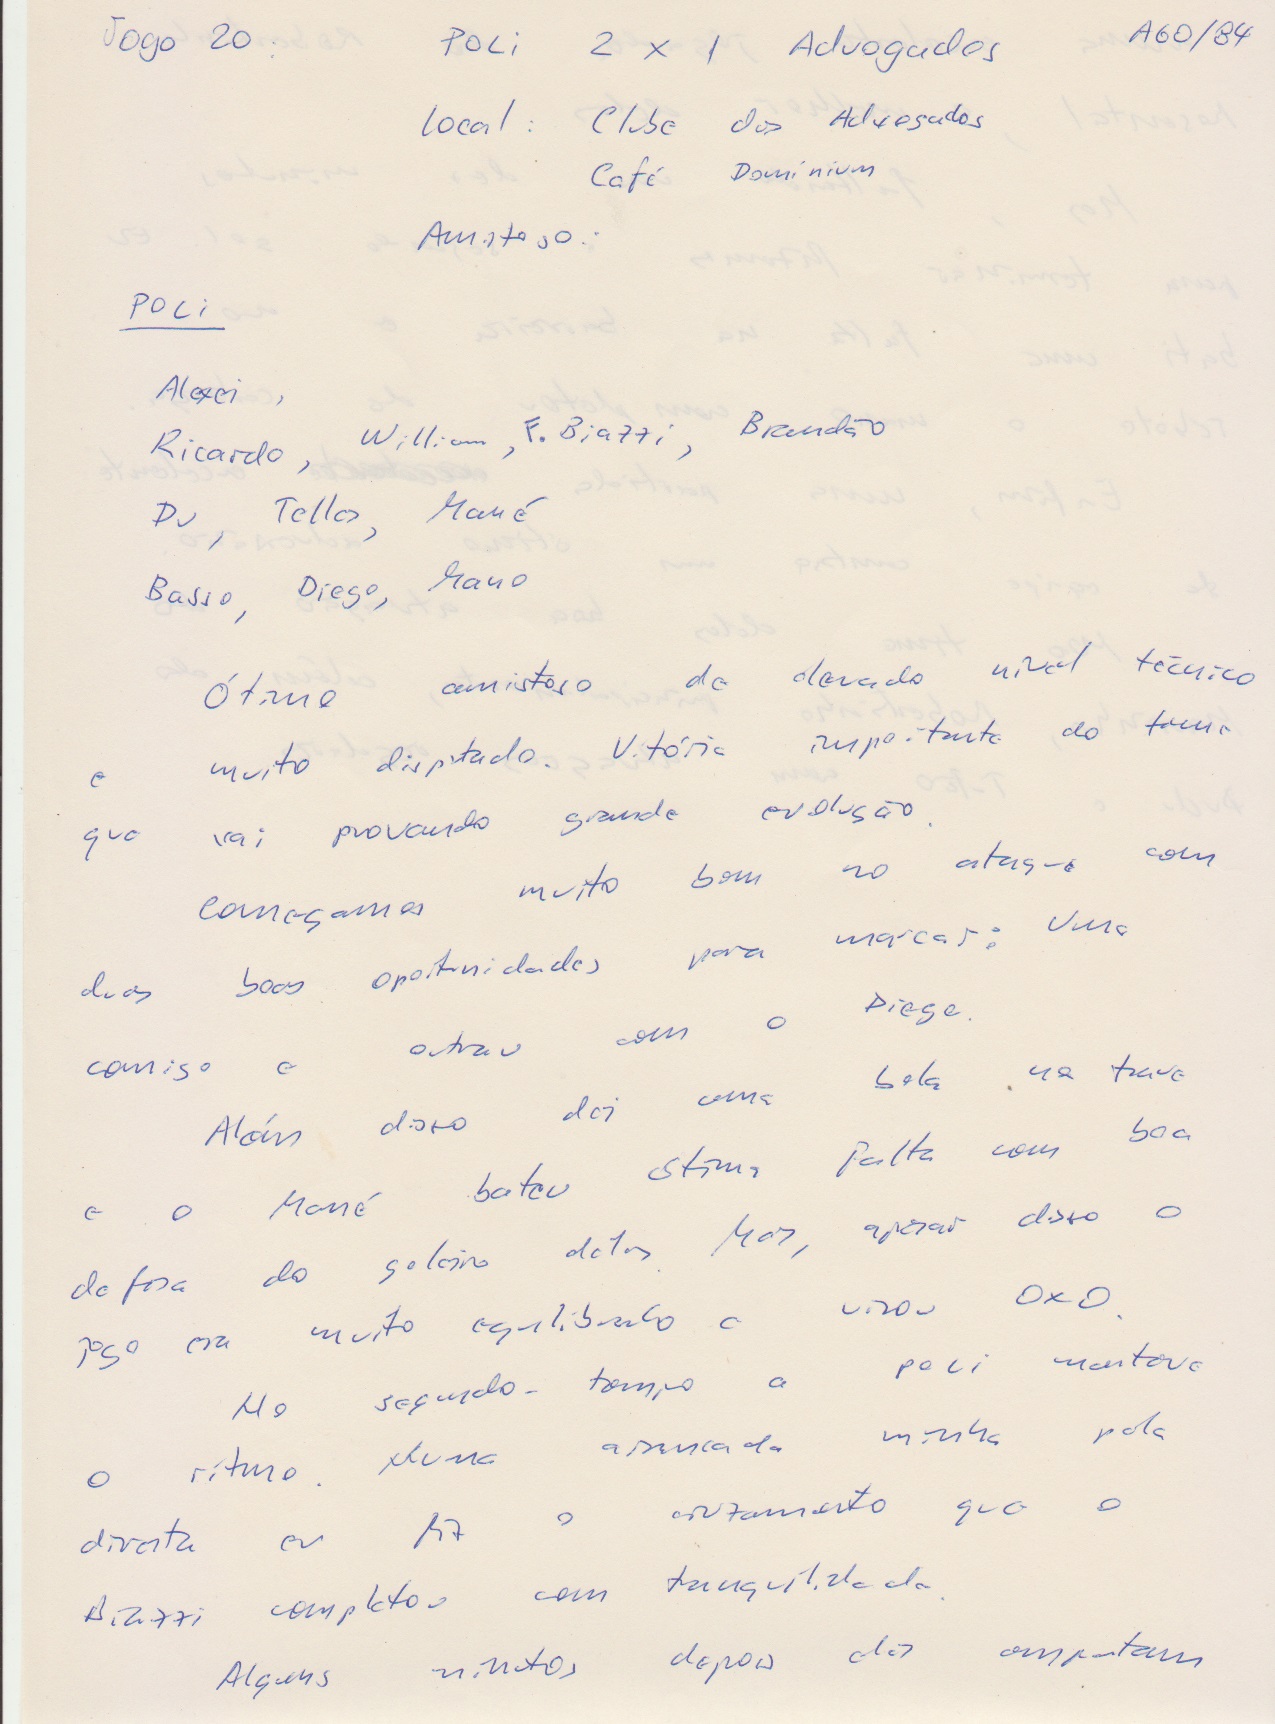 Jogo 20: POLI 2 x 1 Advogados AGO/84
Local: Clube dos Advogados
Café Dominium
Amistoso:
POLI
Alexei,
Ricardo, William, F. Biazzi, Brandão
Du, Telles, Mané
Basso, Diego, Mano
Ótimo amistoso de elevado nível técnico
e muito disputado. Vitória importante do time
que vai provando grande evolução.
Começamos muito bem no ataque com
duas boas oportunidades para marcar: Uma
comigo e outra com o Diego.
Além disso dei uma bola na trave
e o Mané bateu ótima falta com boa
defesa do goleiro deles. Mas, apesar disso o
jogo era muito equilibrado e virou 0x0.
No segundo-tempo a poli manteve
o ritmo. Numa arrancada minha pela
direita eu fiz o cruzamento que o
Biazzi completou com tranquilidade.
Alguns minutos depois eles empatam